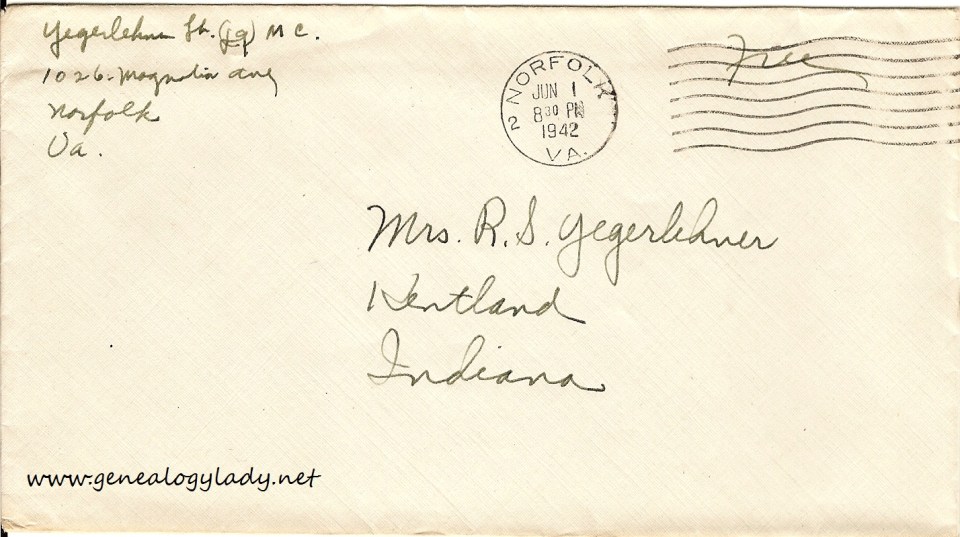 Yegerlehner Lt. (jg) M C.
1026 - Magnolia Ave
Norfolk
Va.
2 NORFOLK VA.
JUN 1
8 30 PM
1942
Free
Mrs. R. S. Yegerlehner
Kentland
Indiana
www.genealogylady.net